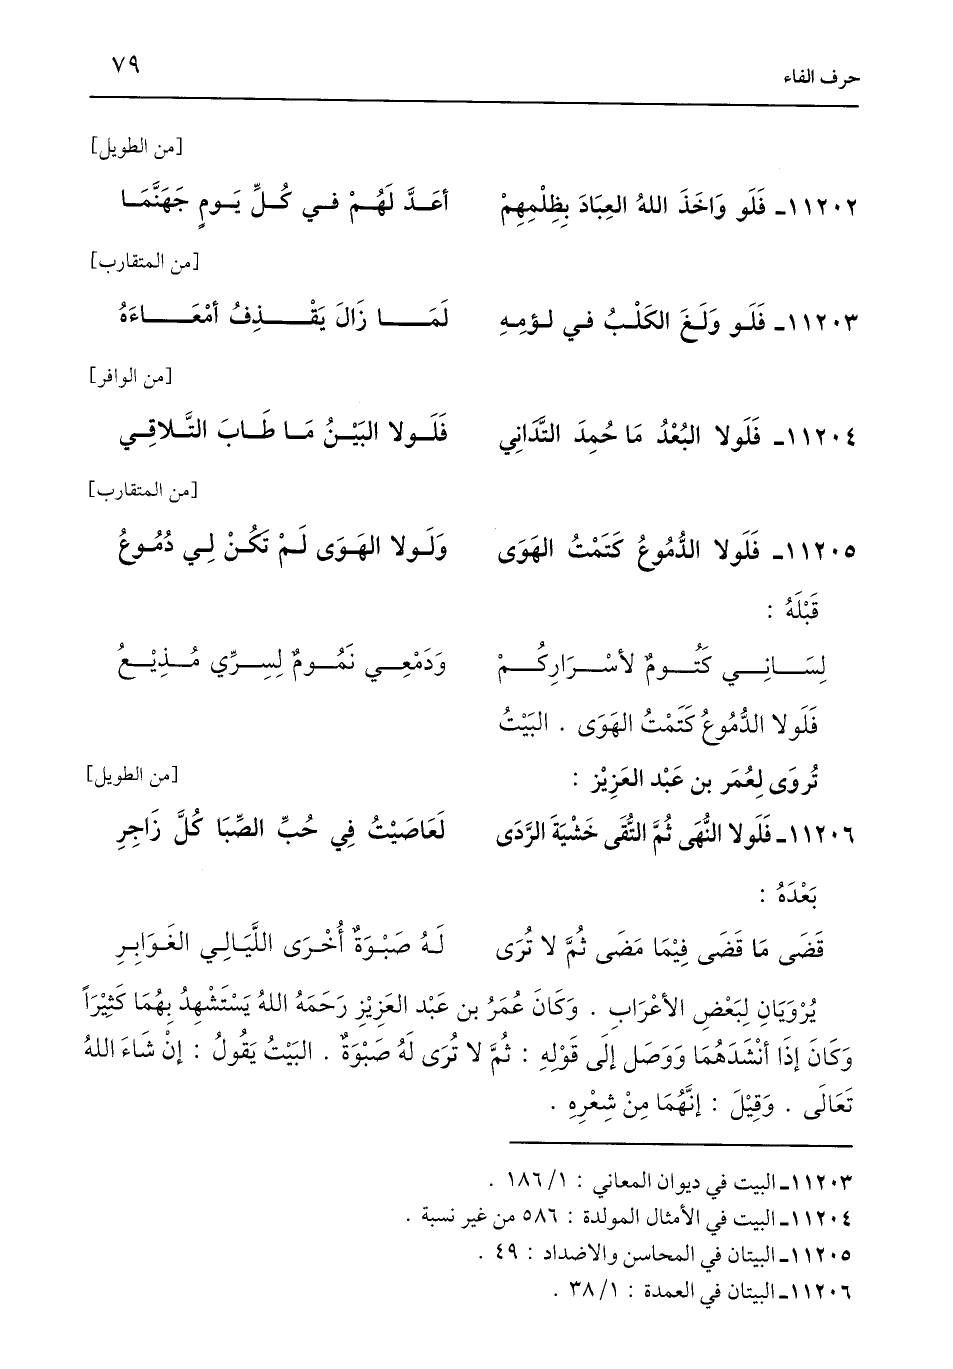 حرف الفاء ٧٩
[من الطويل]
١١٢٠٢ـ فَلَو وَاخَذَ اللهُ العِبَادَ بِظِلْمِهِمْ أعَدَّ لَهُمْ في كُلِّ يَومٍ جَهَنَّمَا
[من المتقارب]
١١٢٠٣ـ فَلَو وَلَغَ الكَلْبُ في لؤمِهِ لَمَا زَالَ يَقْذِفُ أمْعَاءَهُ
[من الوافر]
١١٢٠٤ـ فَلَولا البُعْدُ مَا حُمِدَ التَّدَانِي فَلَولا البَيْنُ مَا طَابَ التَّلاقِي
[من المتقارب]
١١٢٠٥ـ فَلَولا الدُّمُوعُ كَتَمْتُ الهَوَى وَلَولا الهَوَى لَمْ تَكُنْ لِي دُمُوعُ
قَبْلَهُ :
لِسَانِي كَتُومٌ لأسْرَارِكُمْ وَدَمْعِي نَمُومٌ لِسِرِّي مُذِيْعُ
فَلَولا الدُّمُوعُ كَتَمْتُ الهَوَى . البَيْتُ
تُروَى لِعُمَر بن عَبْد العَزِيْز : [من الطويل]
١١٢٠٦ـ فَلَولا النُّهَى ثُمَّ التُّقَى خَشْيَةَ الرَّدَى لَعَاصَيْتُ فِي حُبِّ الصِّبَا كُلَّ زَاجِرِ
بَعْدَهُ :
قَضَى مَا قَضَى فِيْمَا مَضَى ثُمَّ لا تُرَى لَهُ صَبْوَةٌ أُخْرَى اللَّيَالِي الغَوَابِرِ
يُرْوَيَانِ لِبَعْضِ الأعْرَابِ . وَكَانَ عُمَرُ بن عَبْد العَزِيْزِ رَحَمَهُ اللهُ يَسْتَشْهِدُ بِهُمَا كَثِيْرَاً
وَكَانَ إذَا أنْشَدَهُمَا وَوَصَل إلَى قَوْلِهِ : ثُمَّ لا تُرَى لَهُ صَبْوَةٌ . البَيْتُ يَقُولُ : إنْ شَاءَ اللهُ
تَعَالَى . وَقِيْلَ : إنَّهُمَا مِنْ شِعْرِهِ .
١١٢٠٣ـ البيت في ديوان المعاني : ١/ ١٨٦ .
١١٢٠٤ـ البيت في الأمثال المولدة : ٥٨٦ من غير نسبة .
١١٢٠٥ـ البيتان في المحاسن والاضداد : ٤٩ .
١١٢٠٦ـ البيتان في العمدة : ١/ ٣٨ .